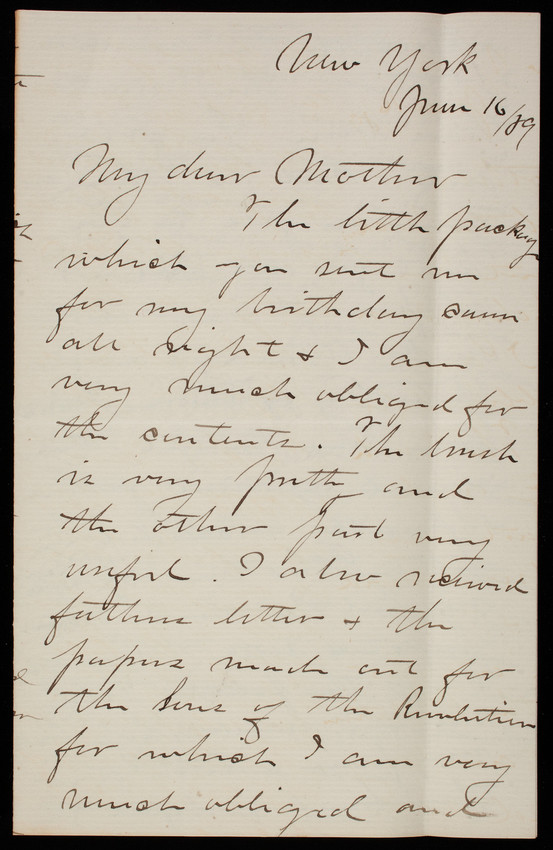 New York
June 16/89
My dear Mother
The little package
which you sent me
for my birthday came
all right & I am
very much obliged for
the contents. The brush
is very pretty and
the other part very
useful. I also recieved
fathers letter & the
papers made out for
the Sons of the Revolution
for which I am very
much obliged and